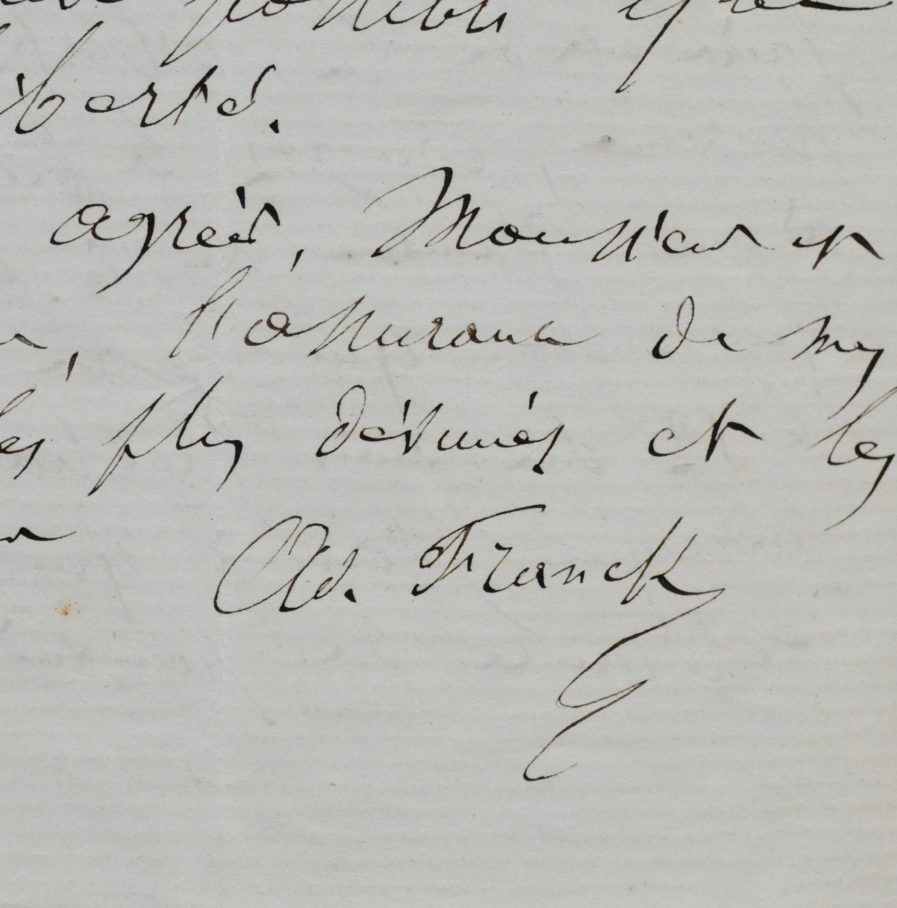 possible que
iberté.
agréer, Monsieur et
l'assurance de mes
les plus dévoués et les
Ad. Franck